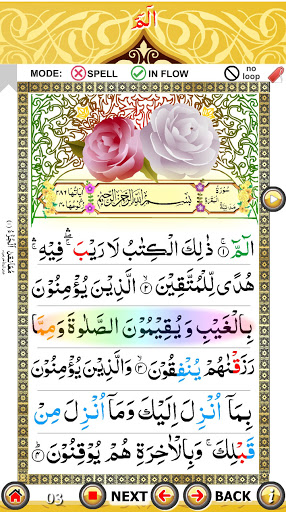 الٓمّٓ
MODE: SPELL IN FLOW no loop
سُوْرَةُ الْبَقَرَةِ مَدَنِيَّةٌ
بِسْمِ اللّٰهِ الرَّحْمٰنِ الرَّحِيْمِ
اٰيَاتُهَا ٢٨٦ رُكُوْعَاتُهَا ٤٠
الٓمّٓ ۚ﴿۱﴾ ذٰلِكَ الْكِتٰبُ لَا رَيْبَ ۛۖ فِيْهِ ۛۚ
هُدًى لِّلْمُتَّقِيْنَ ۙ﴿۲﴾ الَّذِيْنَ يُؤْمِنُوْنَ
بِالْغَيْبِ وَيُقِيْمُوْنَ الصَّلٰوةَ وَمِمَّا
رَزَقْنٰهُمْ يُنْفِقُوْنَ ۙ﴿۳﴾ وَالَّذِيْنَ يُؤْمِنُوْنَ
بِمَاۤ اُنْزِلَ اِلَيْكَ وَمَاۤ اُنْزِلَ مِنْ
قَبْلِكَ ۚ وَبِالْاٰخِرَةِ هُمْ يُوْقِنُوْنَ ؕ﴿۴﴾
03 NEXT BACK i